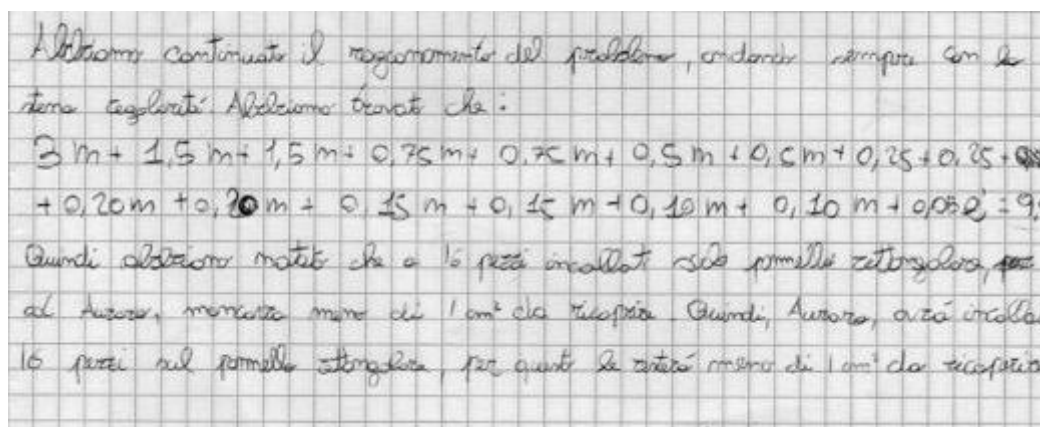 Abbiamo continuato il raggionamento del problema, andando sempre con la
stessa regolarità. Abbiamo trovato che:
3 m + 1,5 m + 1,5 m + 0,75 m + 0,75 m + 0,5 m + 0,5 m + 0,25 + 0,25 +
+ 0,20 m + 0,20 m + 0,15 m + 0,15 m + 0,10 m + 0,10 m + = 9,
Quindi abbiamo notato che a 16 pezzi incollati sulla pannello rettangolare,
ad Aurora, mancava meno di 1 cm² da ricoprire. Quindi, Aurora, avrá incolla
16 pezzi sul pannello rettangolare, per questo le resterá meno di 1 cm² da ricoprire